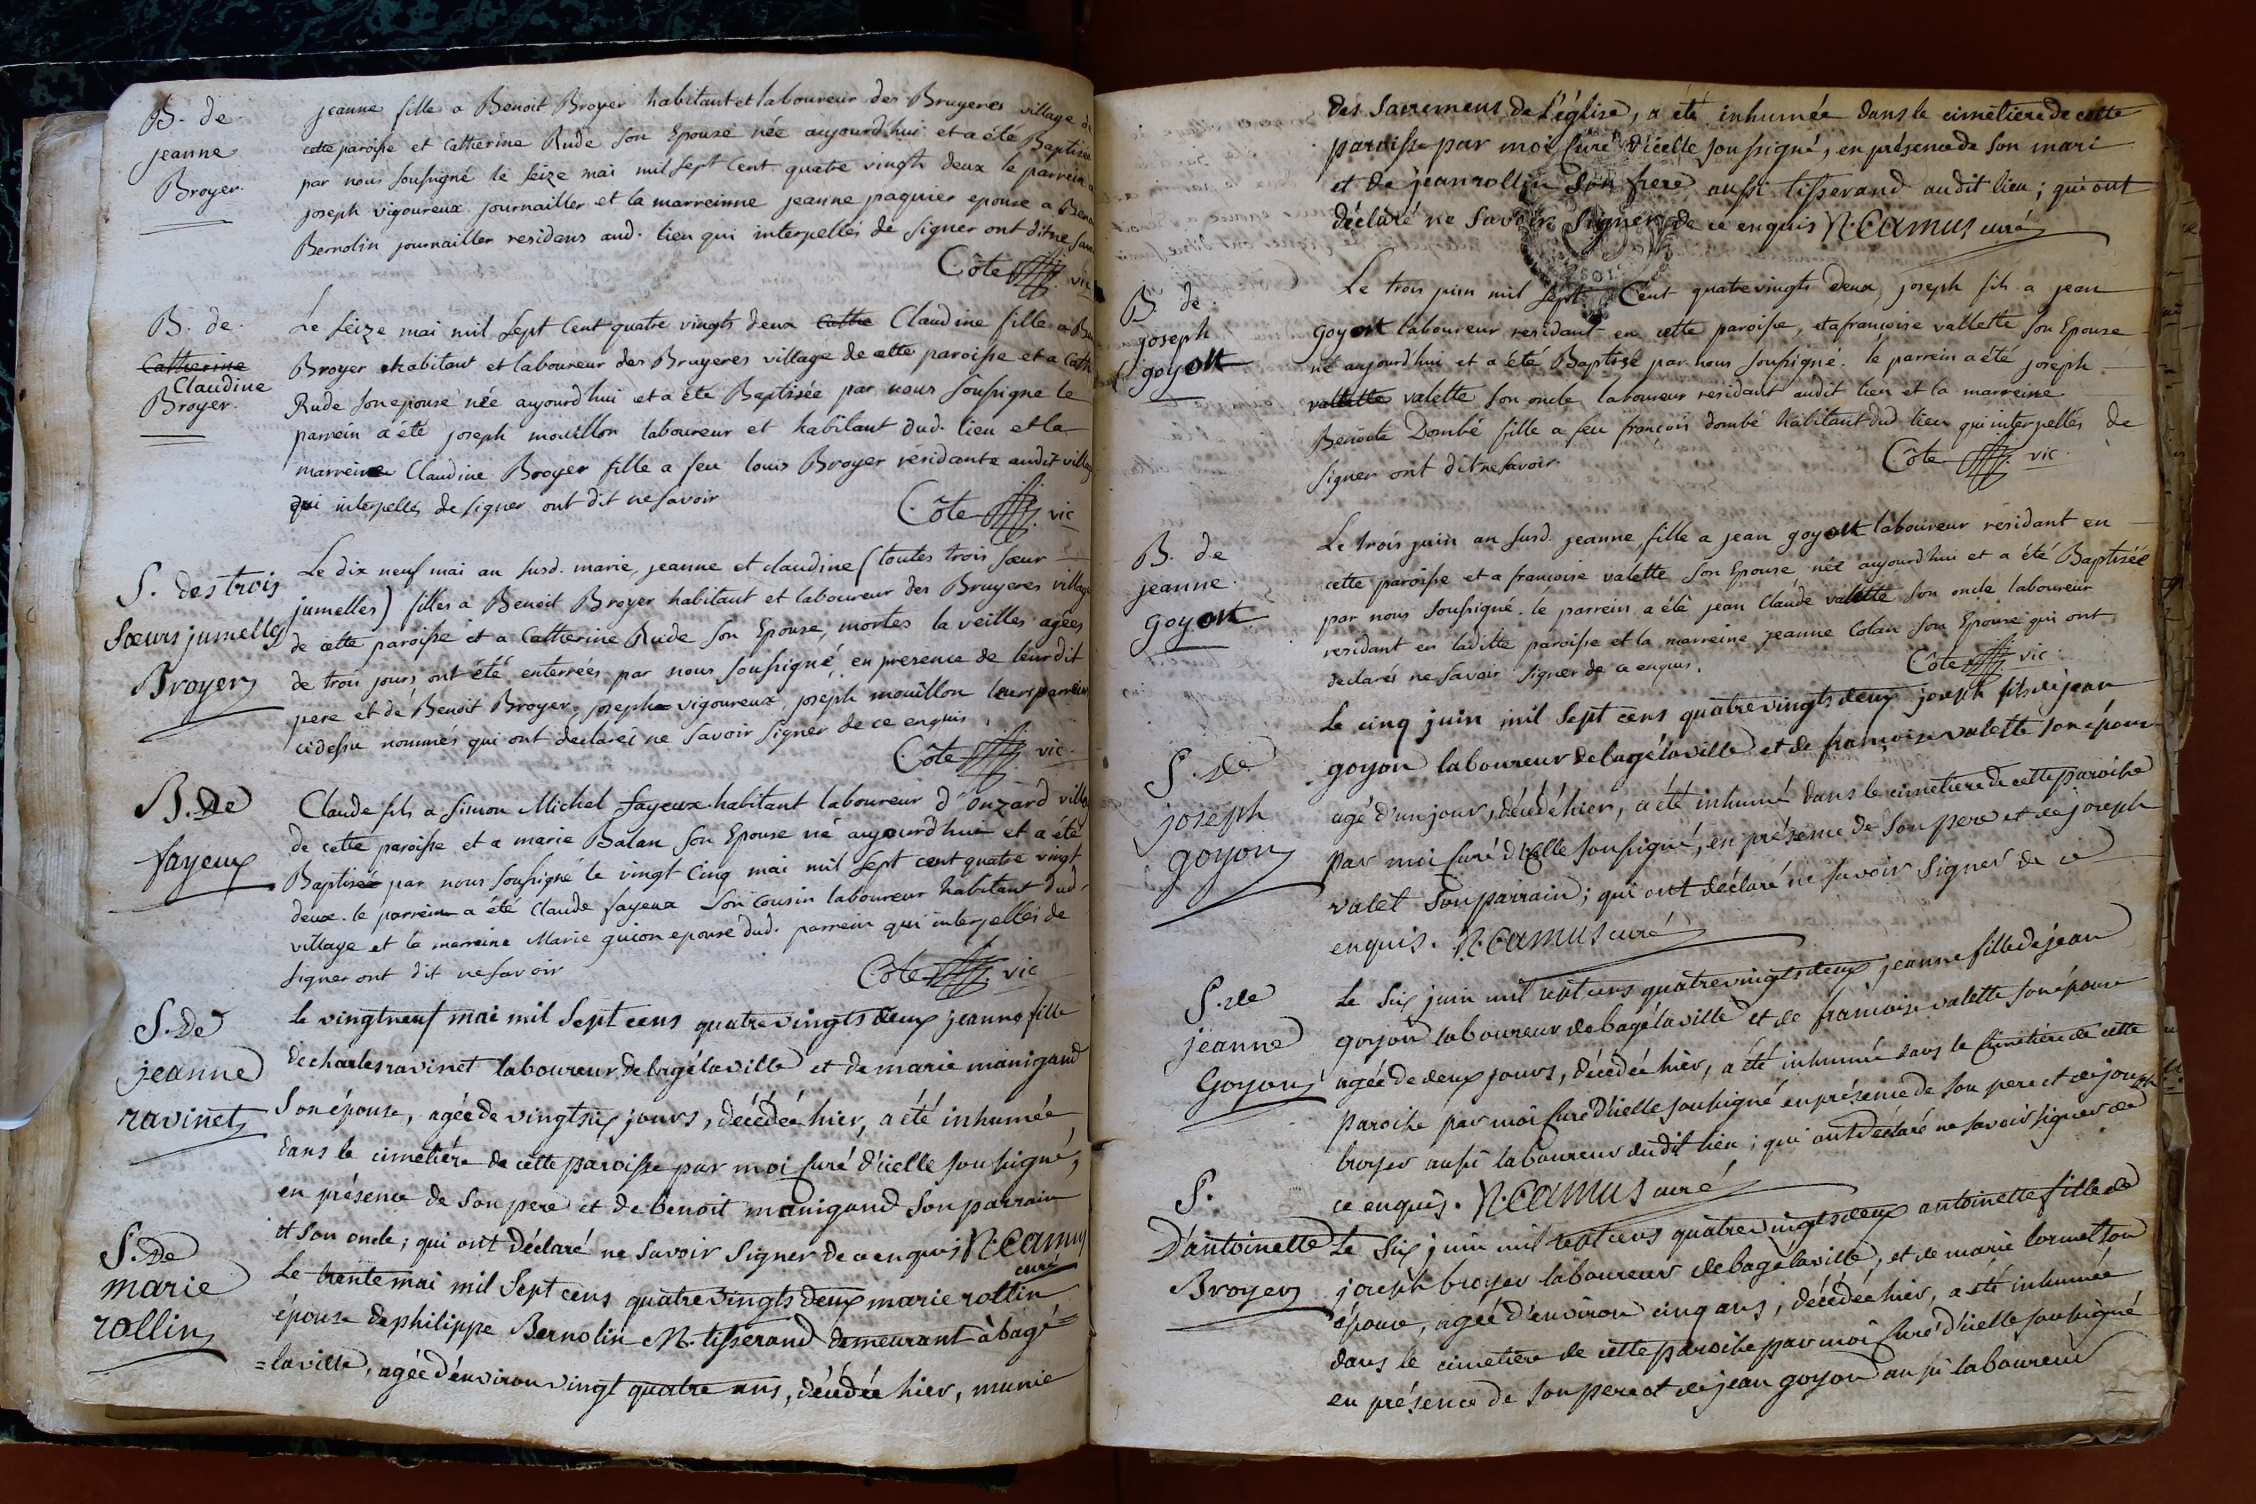 B. de
jeanne
Broyer.
jeanne fille a Benoit Broyer habitant et laboureur des Bruyeres village de
cette paroisse et Catherine Rude son Epouse née aujourd'hui et a été Baptisée
par nous soussigné le seize mai mil sept Cent quatre vingts deux le parrein a
joseph vigoureux journailler et la marreinne jeanne paquier epouse a Benoit
Bernolin journailler residans aud. lieu qui interpellés de signer ont dit ne savoir
Côte vic
B. de
Catherine
Claudine
Broyer.
Le seize mai mil sept Cent quatre vingts deux Cathe Claudine fille a
Broyer habitant et laboureur des Bruyeres village de cette paroisse et a Cathe
Rude son epouse née aujourd'hui et a été Baptisée par nous soussigne le
parrein a été joseph mouillon laboureur et habitant dud. lieu et la
marreine Claudine Broyer fille a feu louis Broyer residante audit village
qui interpellés de signer ont dit ne savoir
Côte vic
S. des trois
sœurs jumelles
Broyer
Le dix neuf mai an susd. marie, jeanne et claudine (toutes trois sœur
jumelles) filles a Benoit Broyer habitant et laboureur des Bruyeres village
de cette paroisse et a Catherine Rude son Epouse, mortes la veilles agées
de trois jours ont été enterrées par nous soussigné, en presence de leur dit
pere et de Benoit Broyer, joseph vigoureux, joseph mouillon leurs parreins
cidessu nommés qui ont déclarés ne savoir signer de ce enquis.
Côte vic.
B. De
fayeux
Claude fils a Simon Michel fayeux habitant laboureur d'Onzard village
de cette paroisse et a marie Balan son Epouse né aujourd'hui et a été
Baptisée par nous soussigné le vingt Cinq mai mil sept cent quatre vingt
deux. le parrein a été Claude fayeux son cousin laboureur habitant dud.
village et la marreine Marie guion epouse dud. parrein qui interpellés de
signer ont dit ne savoir
Côte vic
S. De
jeanne
ravinet
le vingtneuf mai mil sept cens quatre vingts deux jeanne fille
de charles ravinet laboureur de bagé la ville et de marie manigand
son épouse, agée de vingt six jours, décédée hier, a été inhumée
dans le cimetière de cette paroisse par moi Curé d'icelle soussigné,
en présence de son pere et de benoit manigand son parrain
et son oncle; qui ont déclaré ne savoir signer de ce enquis N. Camus
curé
S. De
marie
rollin
Le trente mai mil sept cens quatre vingts deux marie rollin
épouse de philippe Bernolin N. tisserand demeurant à bagé=
=laville, agée d'environ vingt quatre ans, décédée hier, munie
des sacremens de l'église, a été inhumée dans le cimetiere de cette
paroisse par moi Curé d'icelle soussigné, en présence de son mari
et de jean rollin son frere aussi tisserand audit lieu; qui ont
déclaré ne savoir signer de ce enquis N. Camus curé
B. de
joseph
goyon
Le trois juin mil sept Cent quatre vingts deux, joseph fils a jean
goyon laboureur residant en cette paroisse, et a françoise vallette son Epouse
né aujourd'hui et a été Baptisé par nous soussigné. le parrein a été joseph
vallette valette son oncle laboureur residant audit lieu et la marreine
Benoite Dombé fille a feu françois dombé habitant dud lieu qui interpellés de
signer ont dit ne savoir.
Côte vic.
B. de
jeanne
goyon
Le trois juin an susd. jeanne, fille a jean goyon laboureur résidant en
cette paroisse et a francoise valette son Epouse née aujourd'hui et a été Baptisée
par nous soussigné. le parrein a été jean Claude valette son oncle laboureur
residant en laditte paroisse et la marreine jeanne Colan son Epouse qui ont
declarés ne savoir signer de ce enquis.
Côte vic.
S. De
joseph
goyon
Le cinq juin mil sept cens quatre vingts deux joseph fils de jean
goyon laboureur de bagé la ville et de francoise valette son épouse
agé d'un jour, décédé hier, a été inhumé dans le cimetiere de cette paroisse
par moi Curé d'icelle soussigné, en présence de son pere et de joseph
valet son parrain; qui ont déclaré ne savoir signer de ce
enquis. N. Camus curé
S. de
jeanne
Goyon
Le six juin mil sept cens quatre vingts deux jeanne fille de jean
goyon laboureur de bagé la ville et de francoise valette son épouse
agée de deux jours, décédée hier, a été inhumée dans le Cimetière de cette
paroisse par moi Curé d'icelle soussigné en présence de son pere et de joseph
broyer aussi laboureur dudit lieu; qui ont déclaré ne savoir signer de
ce enquis. N. Camus curé
S.
D'antoinette
Broyer
Le six juin mil sept cens quatre vingts deux antoinette fille de
joseph broyer laboureur de bagé la ville, et de marie lormet son
épouse, agée d'environ cinq ans, décédée hier, a été inhumée
dans le cimetière de cette paroisse par moi Curé d'icelle soussigné
en présence de son pere et de jean goyon aussi laboureur